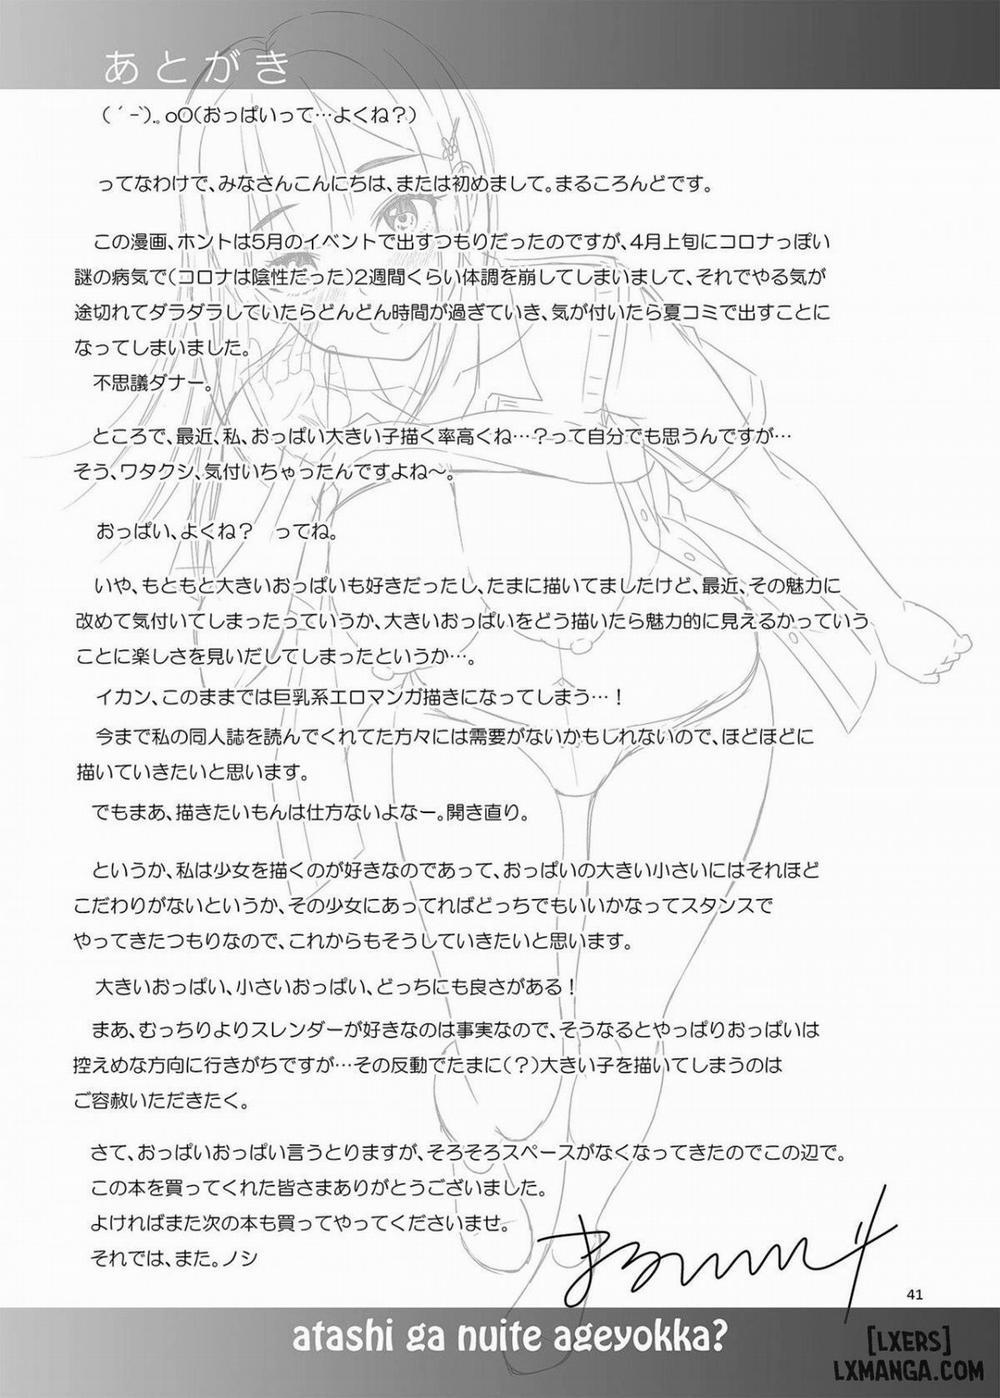 あとがき
(´-`).｡oO(おっぱいって…よくね?)
ってなわけで、みなさんこんにちは、または初めまして。まるころんどです。
この漫画、ホントは5月のイベントで出すつもりだったのですが、4月上旬にコロナっぽい
謎の病気で(コロナは陰性だった)2週間くらい体調を崩してしまいまして、それでやる気が
途切れてダラダラしていたらどんどん時間が過ぎていき、気が付いたら夏コミで出すことに
なってしまいました。
不思議ダナー。
ところで、最近、私、おっぱい大きい子描く率高くね…?って自分でも思うんですが…
そう、ワタクシ、気付いちゃったんですよね〜。
おっぱい、よくね?　ってね。
いや、もともと大きいおっぱいも好きだったし、たまに描いてましたけど、最近、その魅力に
改めて気付いてしまったっていうか、大きいおっぱいをどう描いたら魅力的に見えるかっていう
ことに楽しさを見いだしてしまったというか…。
イカン、このままでは巨乳系エロマンガ描きになってしまう…!
今まで私の同人誌を読んでくれてた方々には需要がないかもしれないので、ほどほどに
描いていきたいと思います。
でもまあ、描きたいもんは仕方ないよなー。開き直り。
というか、私は少女を描くのが好きなのであって、おっぱいの大きい小さいにはそれほど
こだわりがないというか、その少女にあってればどっちでもいいかなってスタンスで
やってきたつもりなので、これからもそうしていきたいと思います。
大きいおっぱい、小さいおっぱい、どっちにも良さがある!
まあ、むっちりよりスレンダーが好きなのは事実なので、そうなるとやっぱりおっぱいは
控えめな方向に行きがちですが…その反動でたまに(?)大きい子を描いてしまうのは
ご容赦いただきたく。
さて、おっぱいおっぱい言うとりますが、そろそろスペースがなくなってきたのでこの辺で。
この本を買ってくれた皆さまありがとうございました。
よければまた次の本も買ってやってくださいませ。
それでは、また。ノシ
41
atashi ga nuite ageyokka?
[LXERS]
LXMANGA.COM